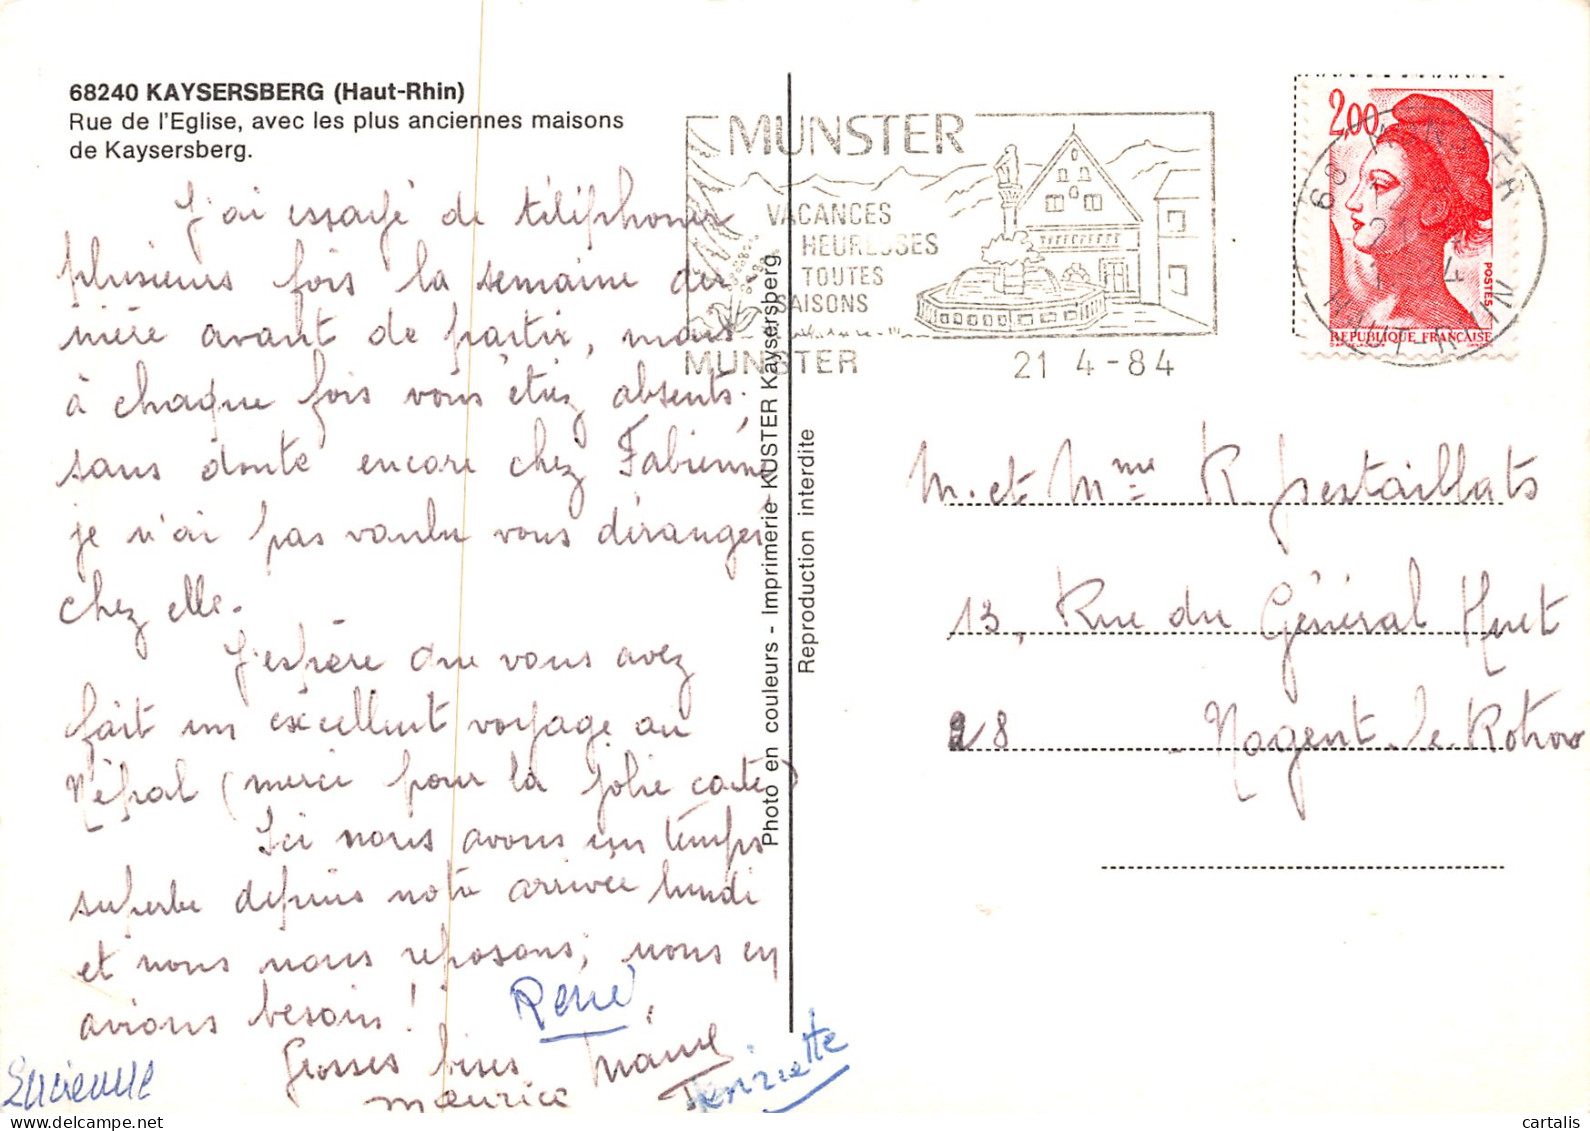 68240 KAYSERSBERG (Haut-Rhin)
Rue de l'Eglise, avec les plus anciennes maisons
de Kaysersberg.
J'ai essayé de téléphoner
plusieurs fois la semaine der-
nière avant de partir, mais
à chaque fois vous étiez absents;
sans doute encore chez Fabienne
je n'ai pas voulu vous déranger
chez elle.
J'espère que vous avez
fait un excellent voyage au
Népal (merci pour la jolie carte)
Ici nous avons un temps
superbe depuis notre arrivée lundi
et nous nous reposons; nous en
avions besoin!
Grosses bises
René
Maurice
Lucienne
Henriette
Photo en couleurs - Imprimerie KUSTER Kaysersberg.
Reproduction interdite
MUNSTER
VACANCES
HEUREUSES
TOUTES
SAISONS
MUNSTER
21 4-84
2,00
POSTES
REPUBLIQUE FRANÇAISE
68 MUNSTER
HAUT-RHIN
M. et Mme R. Pestaillats
13, Rue du Général Huet
28 - Nogent-le-Rotrou
cartalis